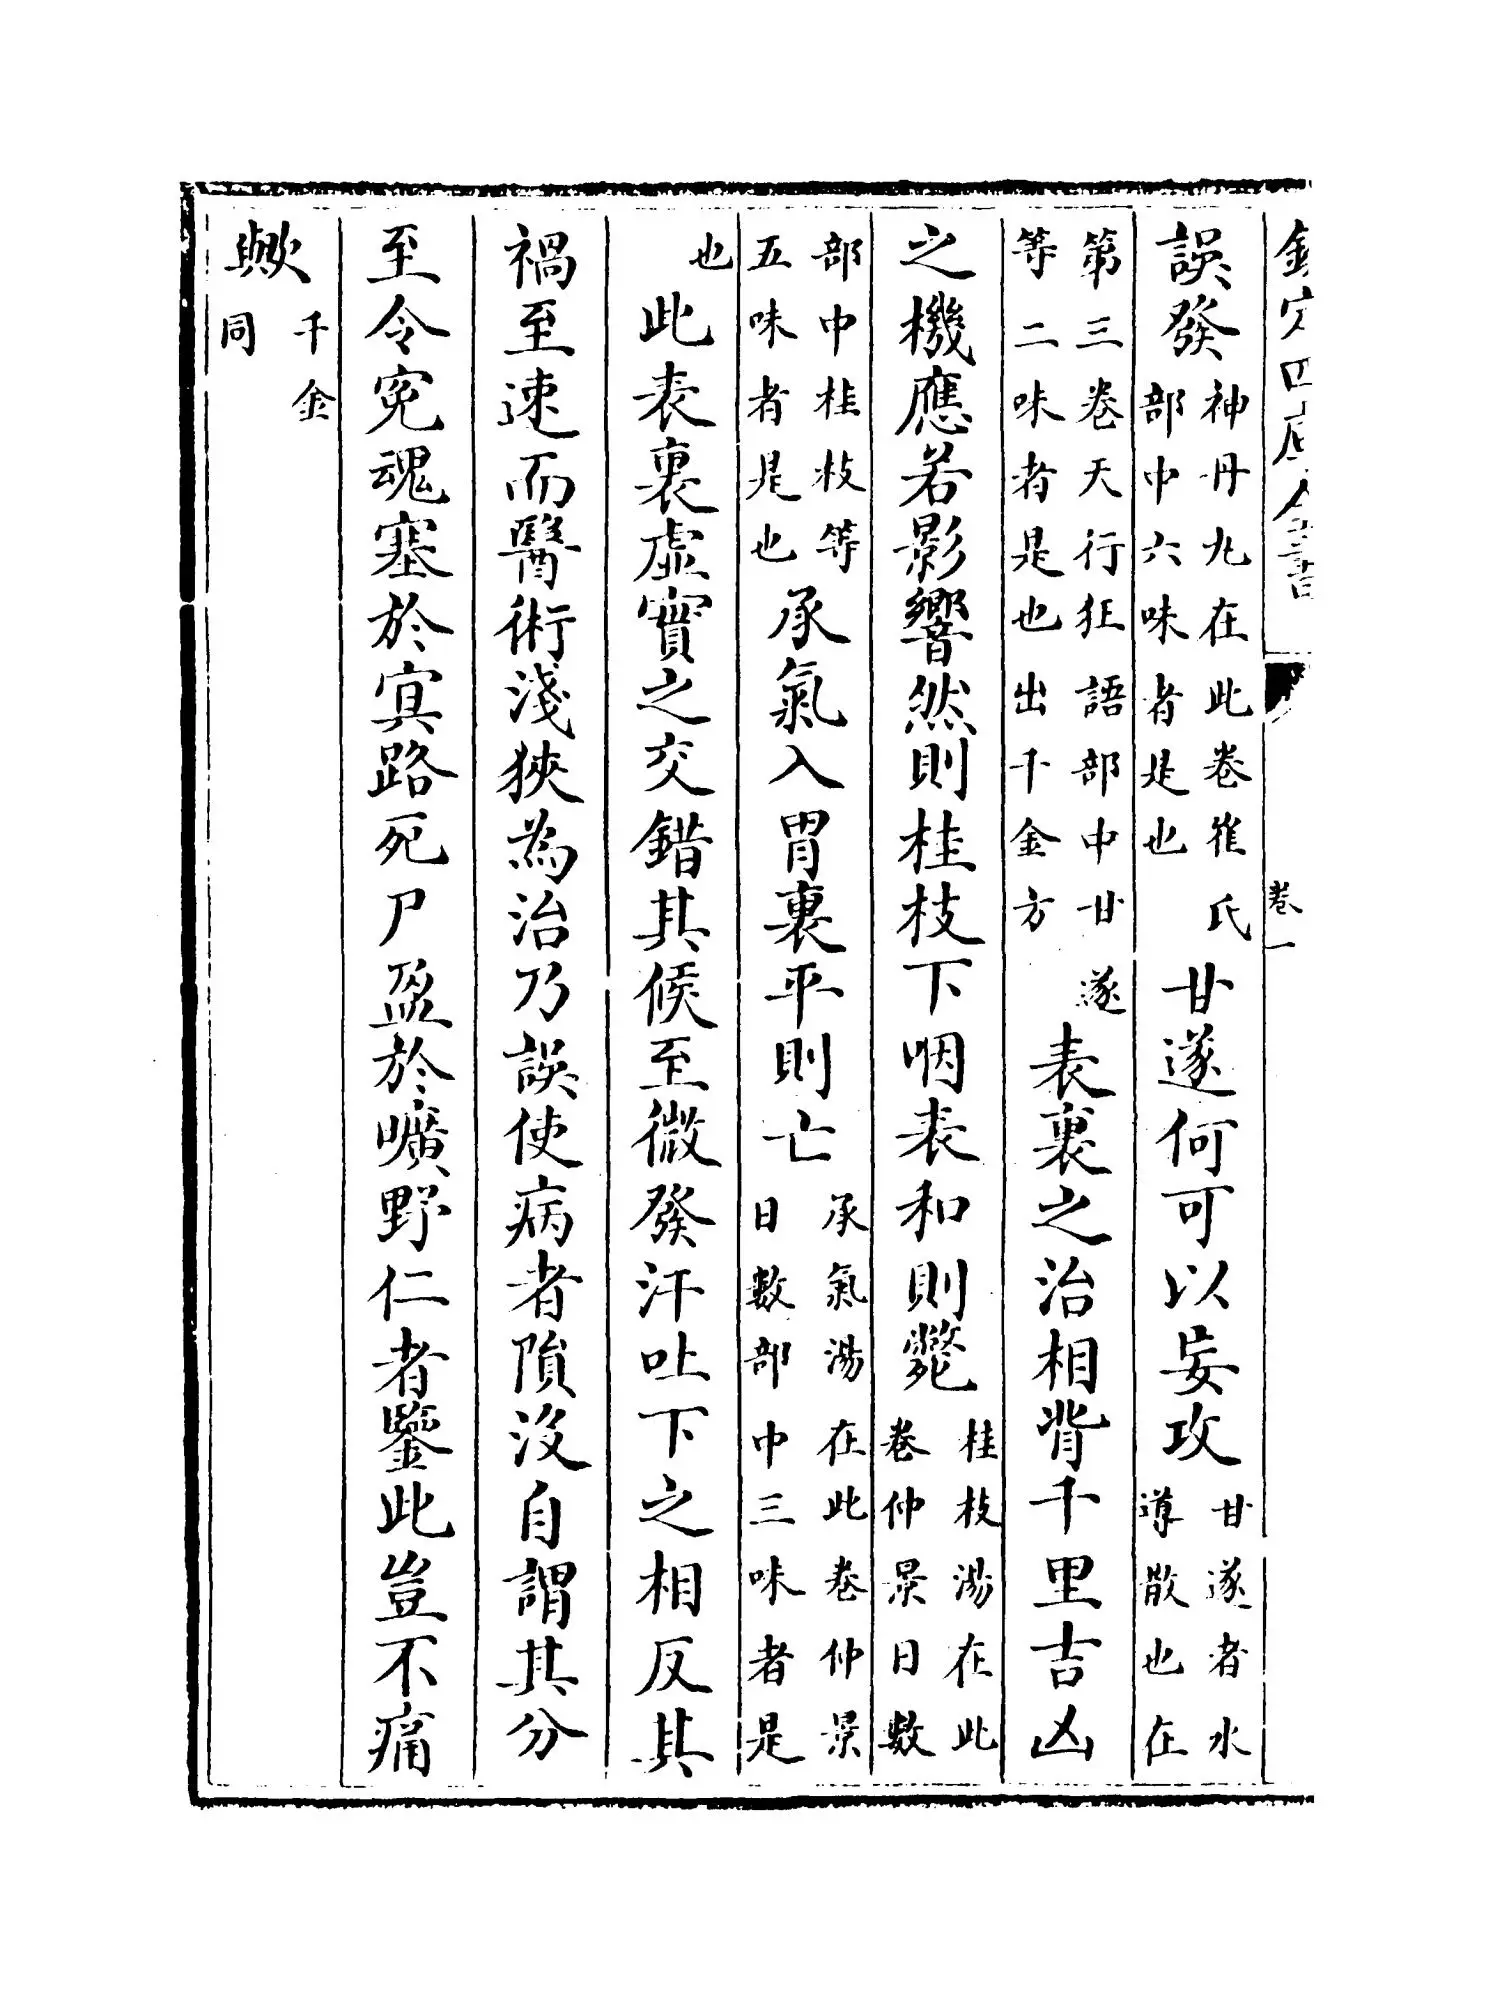 欽定四庫全書 卷一
誤發神丹丸在此卷崔氏部中六味者是也甘遂何可以妄攻甘遂者水導散也在
第三卷天行狂語部中甘遂等二味者是也出千金方表裏之治相背千里吉凶
之機應若影響然則桂枝下咽表和則斃桂枝湯在此卷仲景日數
部中桂枝等五味者是也承氣入胃裏平則亡承氣湯在此卷仲景日數部中三味者是
也此表裏虛實之交錯其候至微發汗吐下之相反其
禍至速而醫術淺狹為治乃誤使病者隕沒自謂其分
至令寃魂塞於㝠路死尸盈於曠野仁者鑒此豈不痛
歟千金同